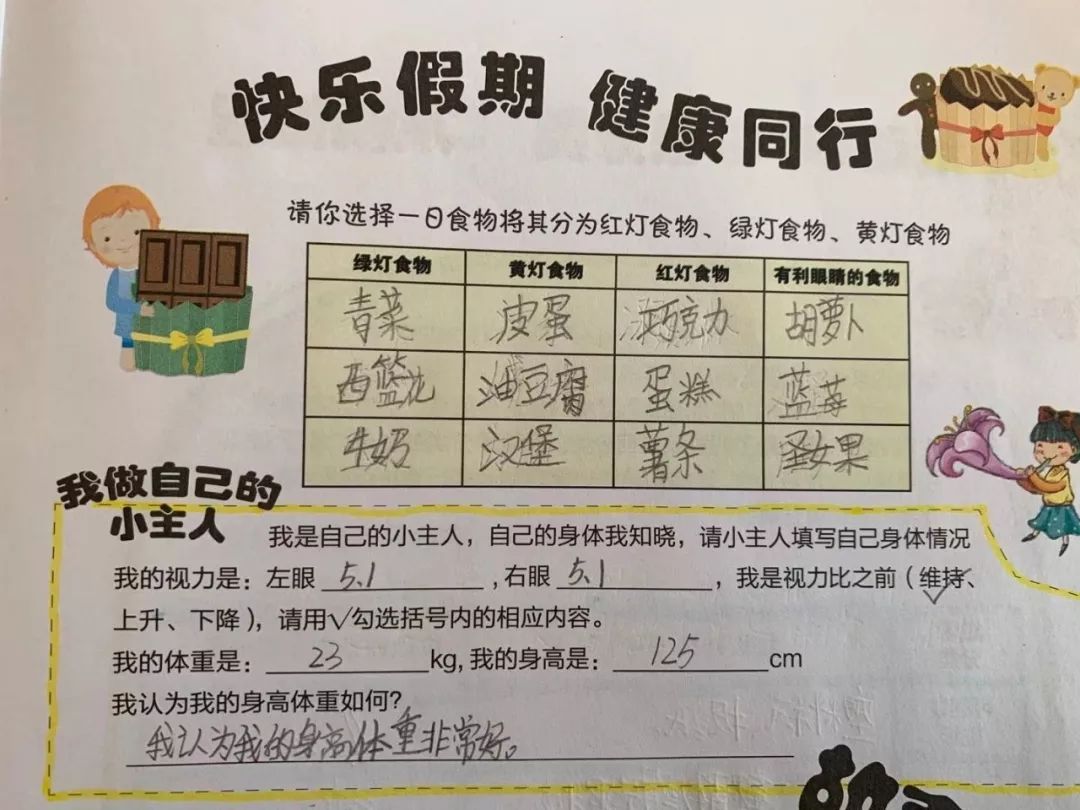 快乐假期 健康同行
请你选择一日食物将其分为红灯食物、绿灯食物、黄灯食物
绿灯食物 黄灯食物 红灯食物 有利眼睛的食物
青菜 皮蛋 巧克力 胡萝卜
西篮花 油豆腐 蛋糕 蓝莓
牛奶 汉堡 薯条 圣女果
我做自己的
小主人
我是自己的小主人，自己的身体我知晓，请小主人填写自己身体情况
我的视力是：左眼 5.1 ，右眼 5.1 ，我是视力比之前（维持、
上升、下降），请用√勾选括号内的相应内容。
我的体重是： 23 kg, 我的身高是： 125 cm
我认为我的身高体重如何？
我认为我的身高体重非常好。